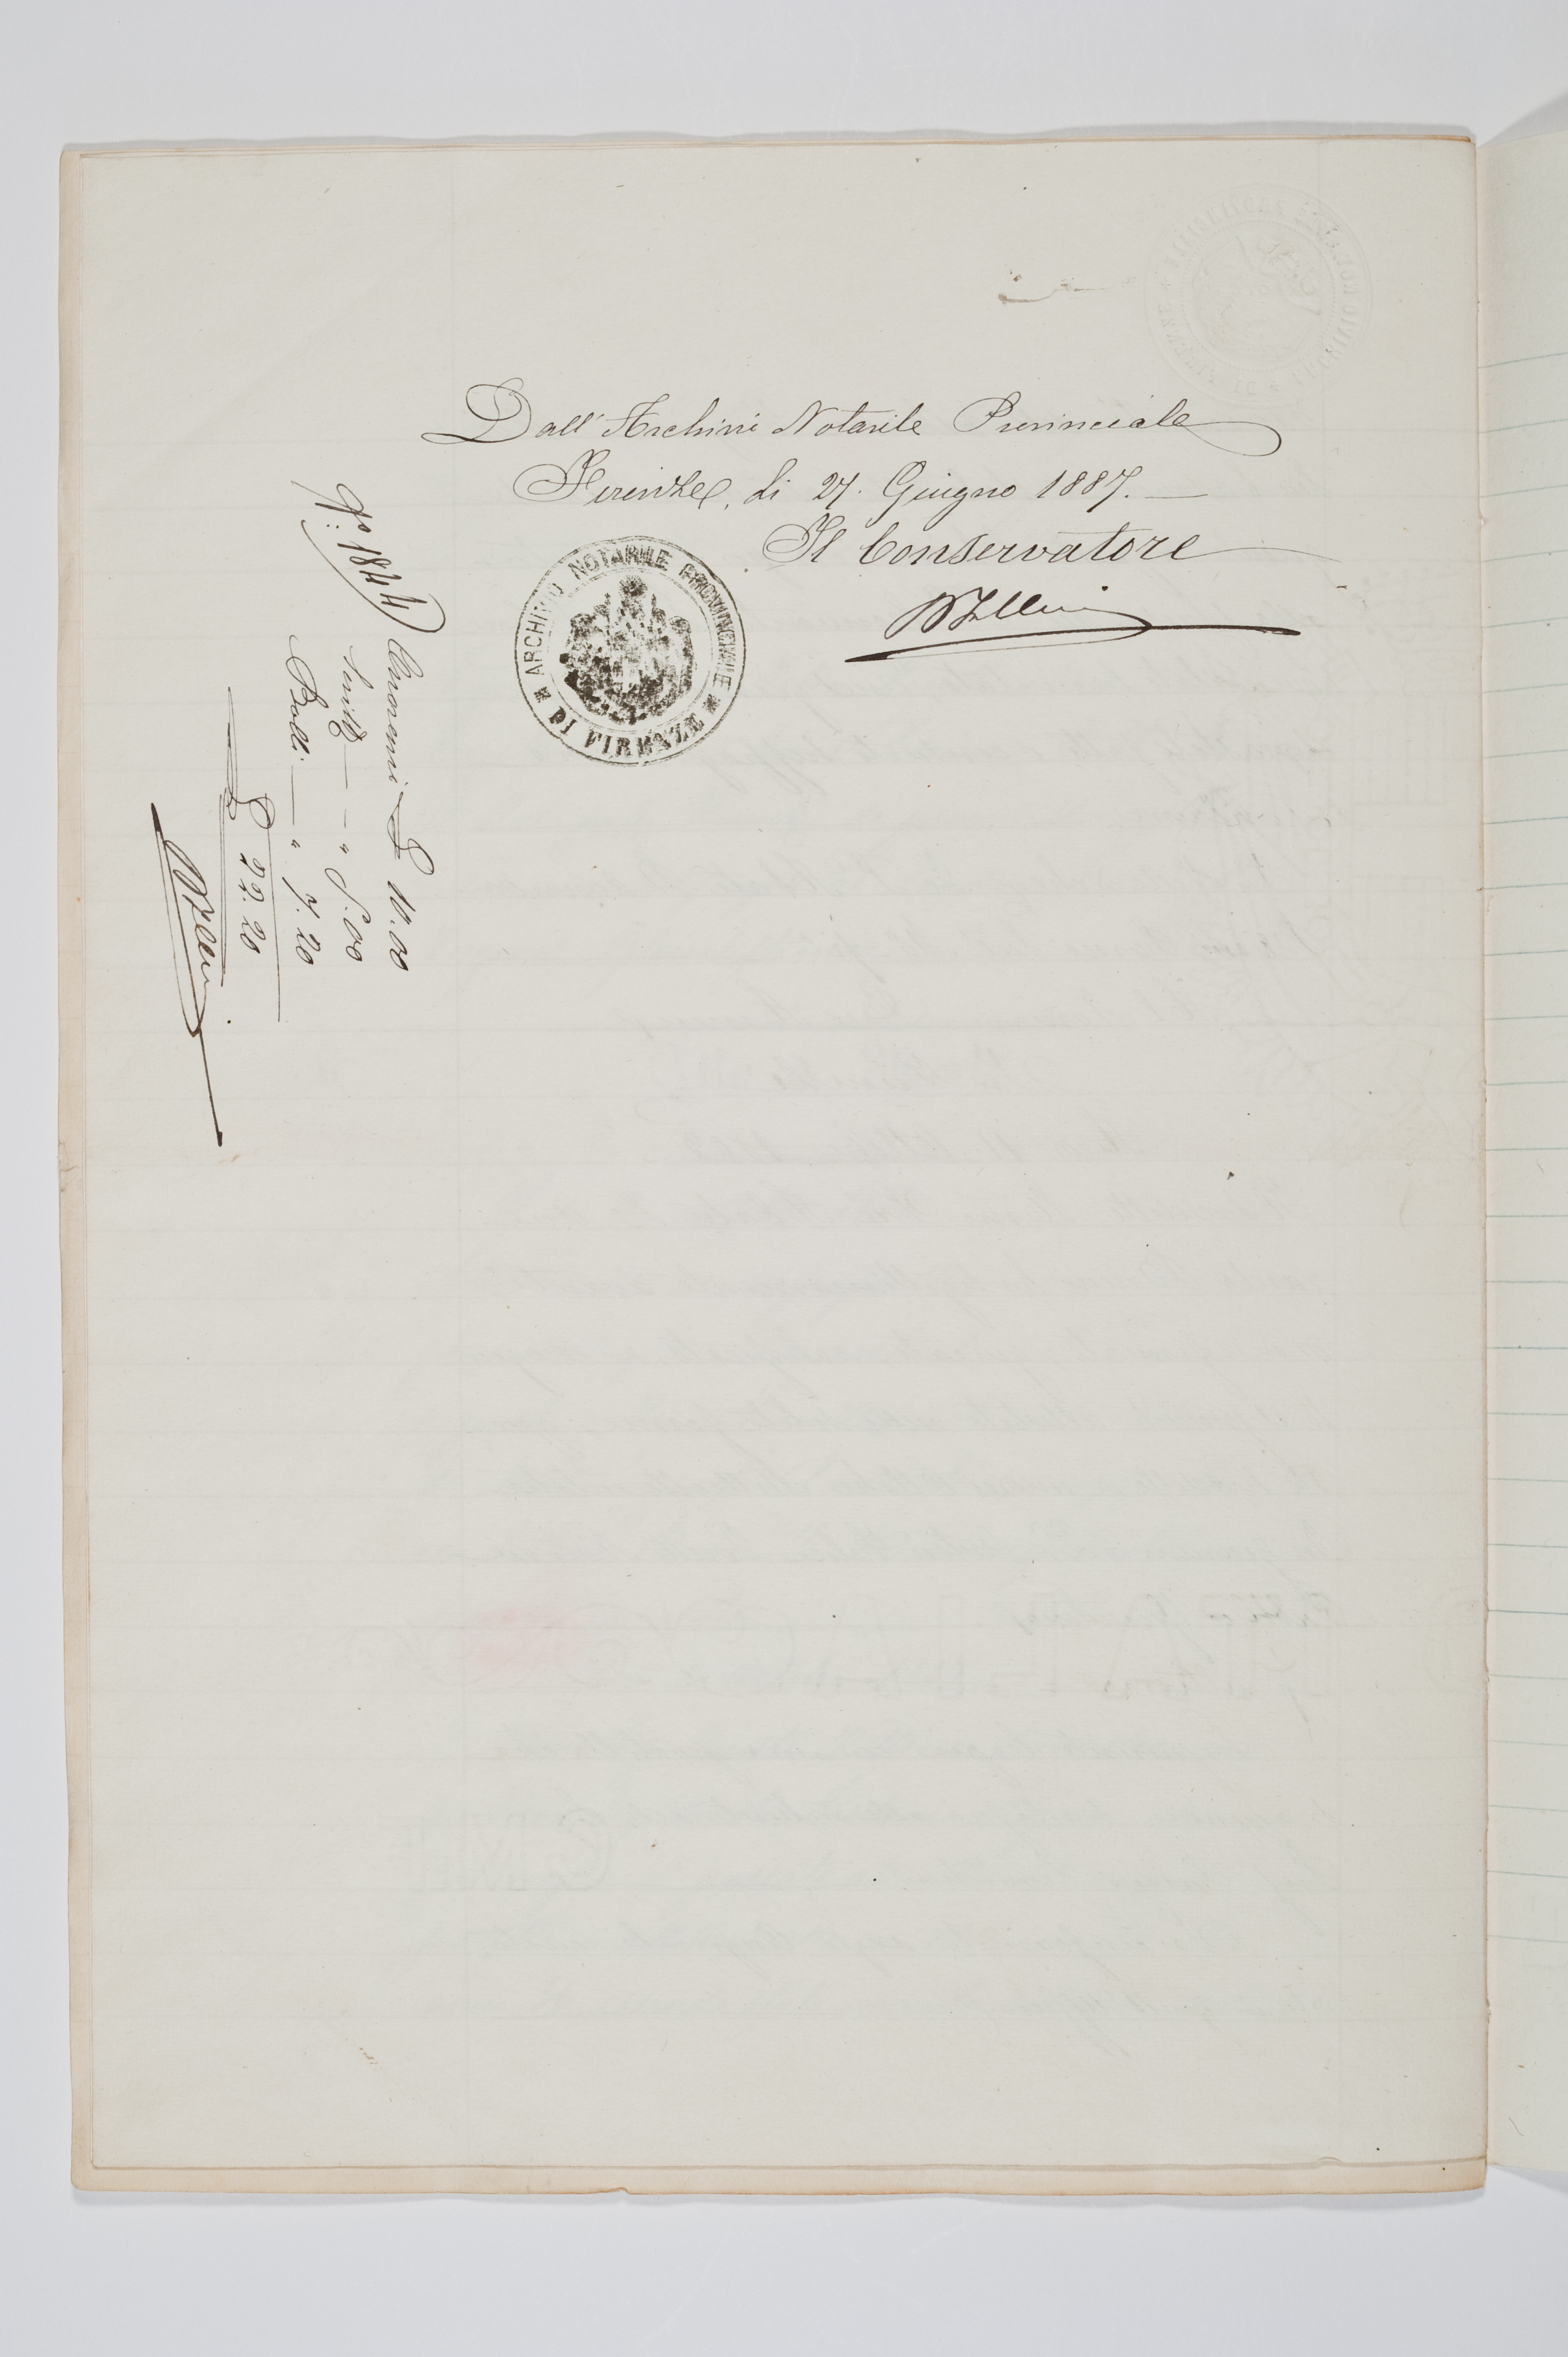 Dall'Archivio Notarile Provinciale
Firenze, li 27. Giugno 1887. —
Il Conservatore
ARCHIVIO NOTARILE PROVINCIALE
* DI FIRENZE *
N.º 1844
Onorari £ 10.00
Scritto — " 5.00
Bolli — " 7.20
£ 22.20